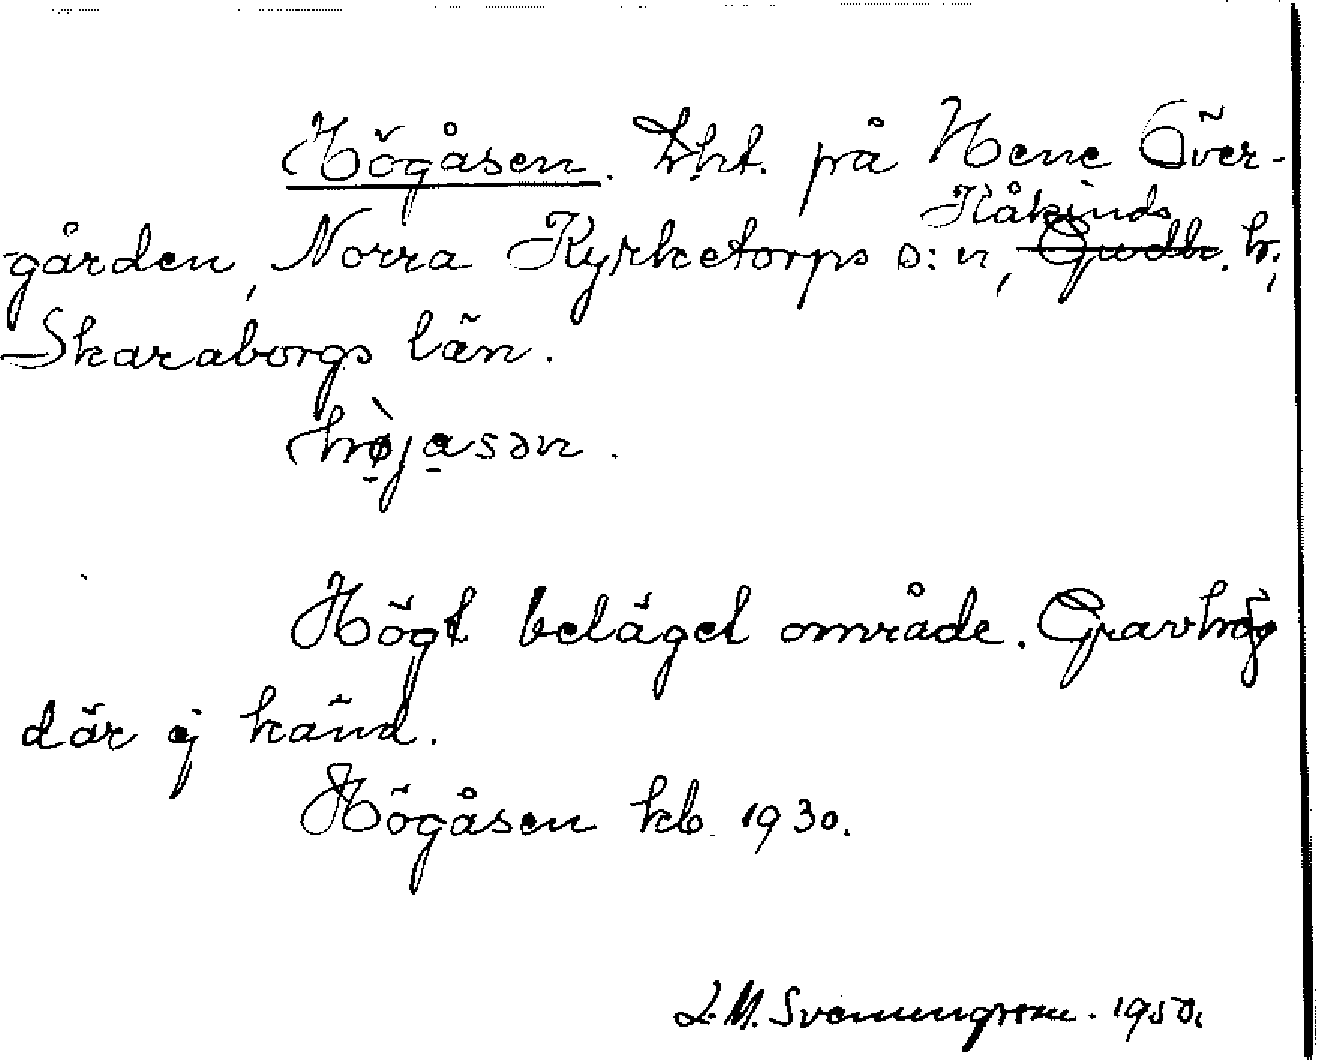 Högåsen. Lht. på Hene Över-
gården, Norra Kyrketorps s:n, Kåkinds h.,
Skaraborgs län.
hø̀jasən.
Högt beläget område. Gravhög
där ej känd.
Högåsen kb. 1930.
L. M. Svenungsson. 1950.